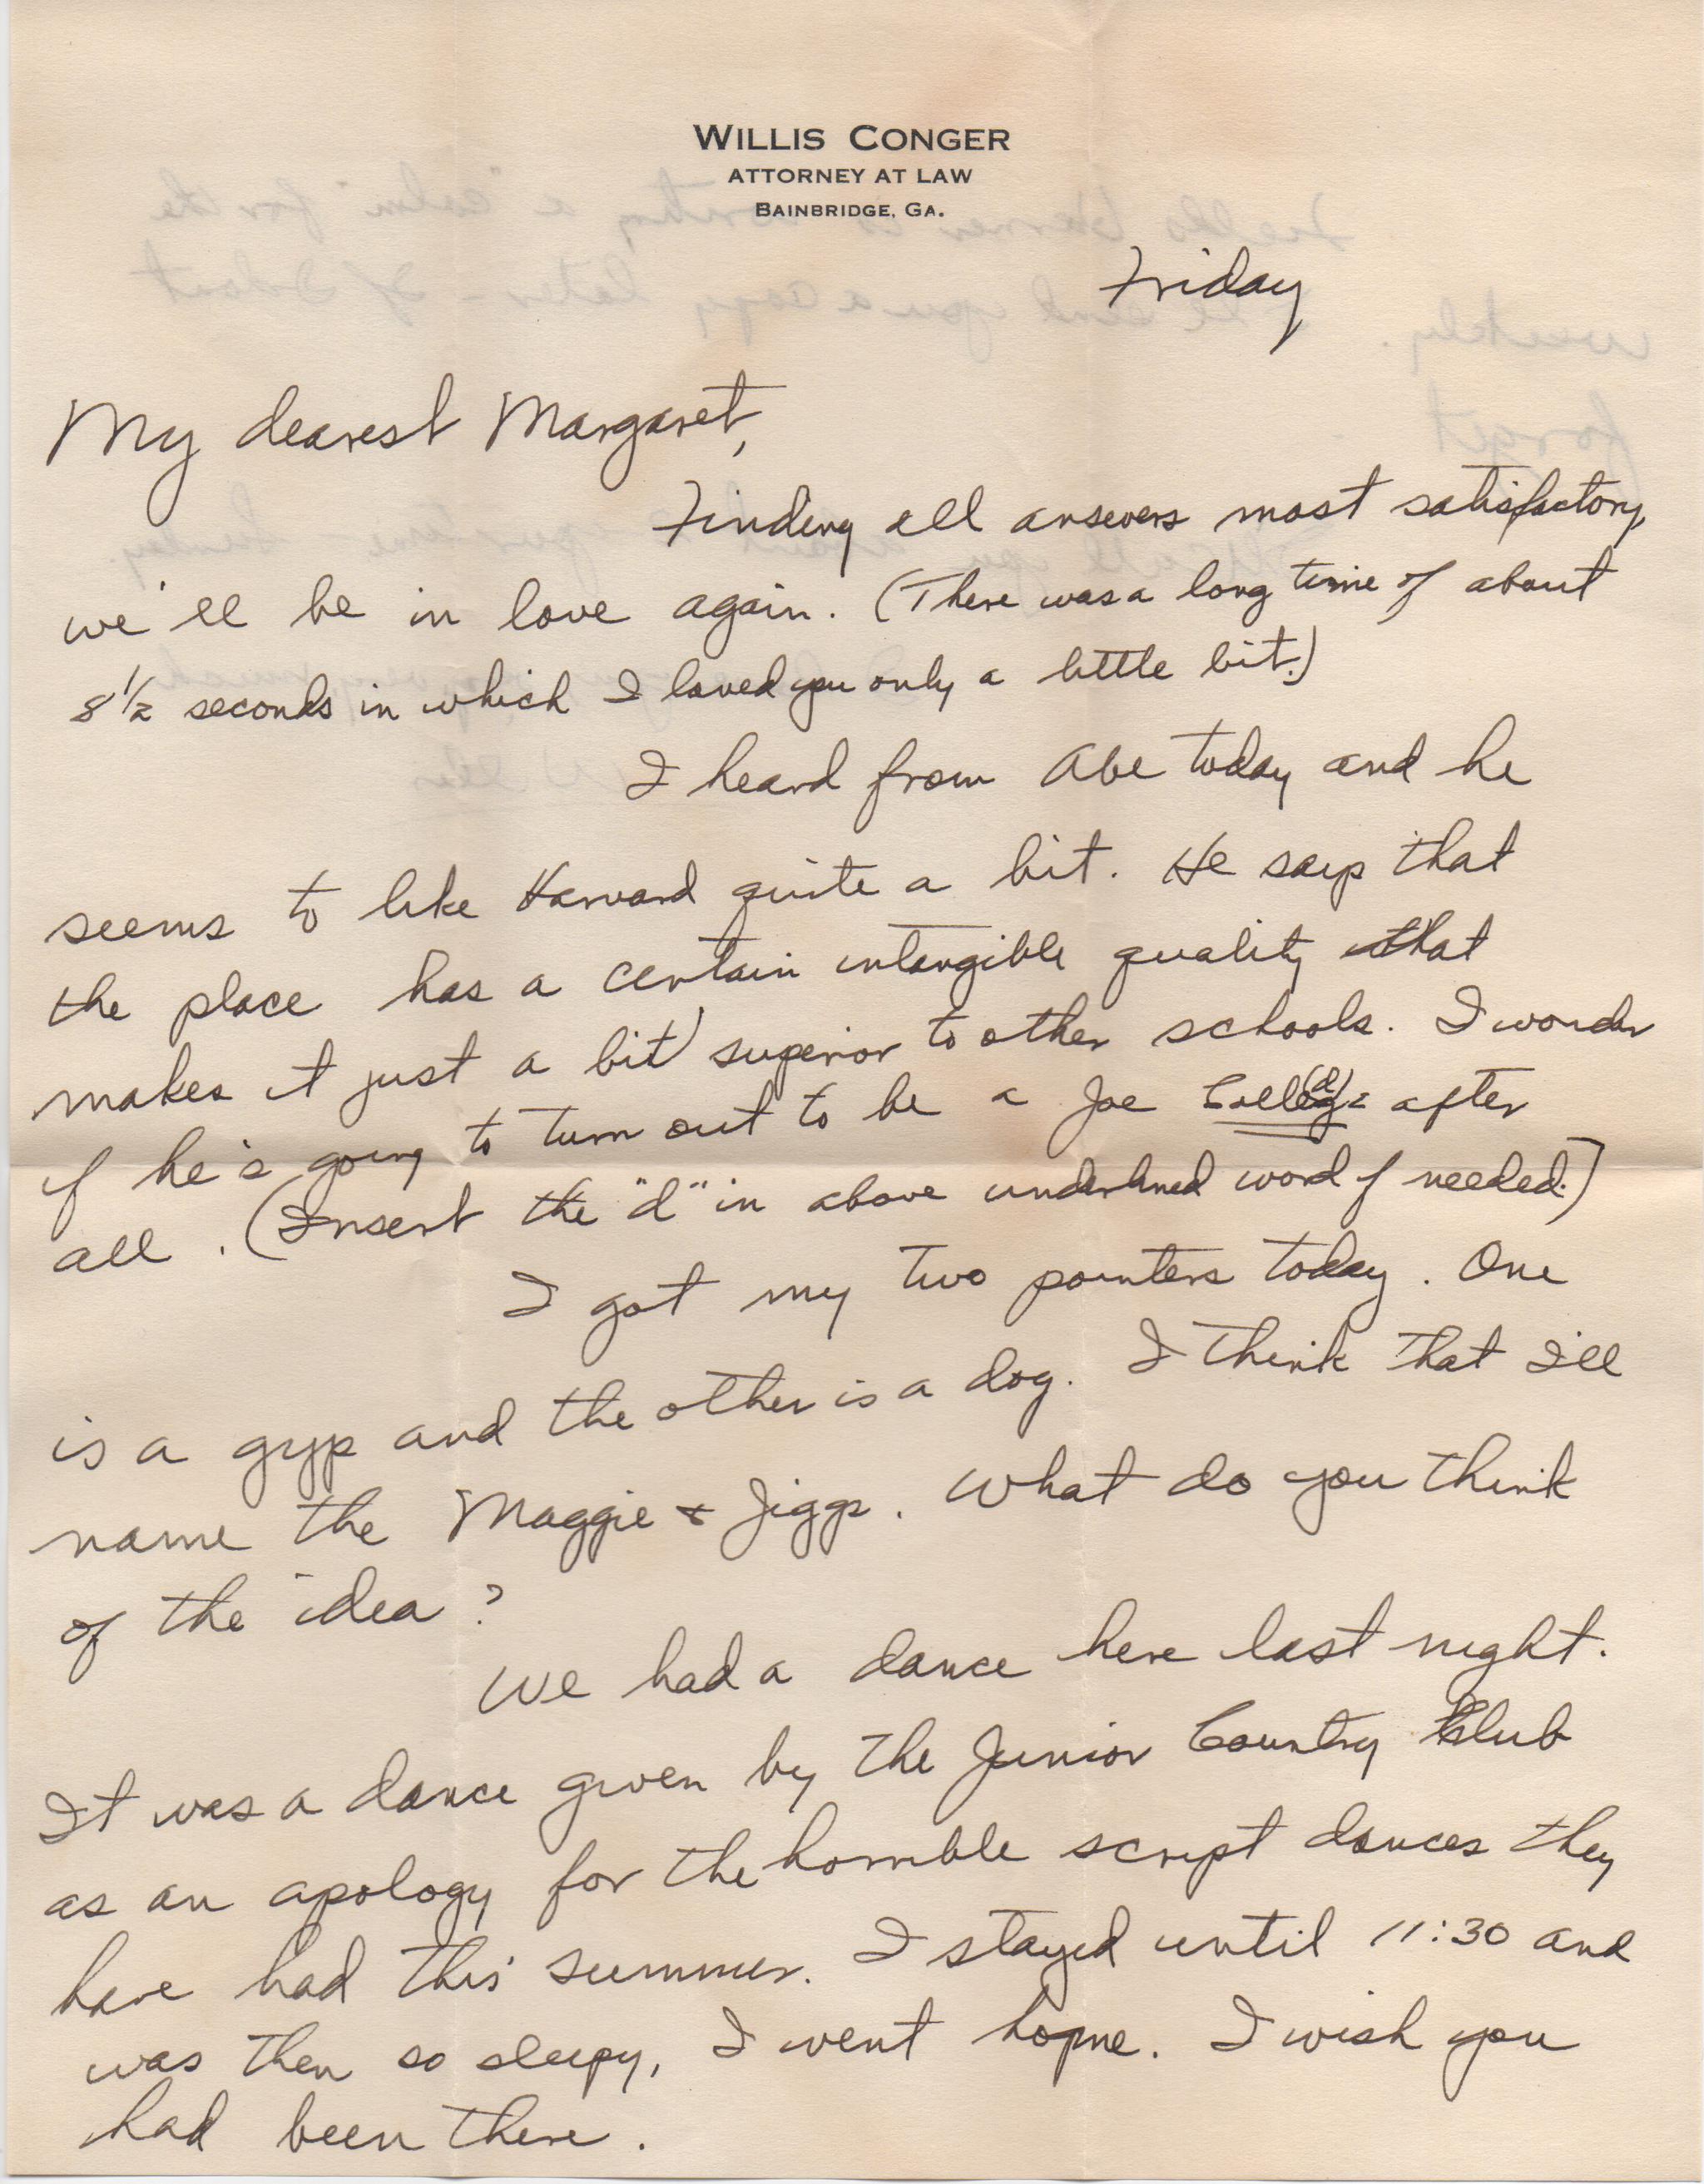 WILLIS CONGER
ATTORNEY AT LAW
BAINBRIDGE, GA.
Friday
My dearest Margaret,
Finding all answers most satisfactory,
we'll be in love again. (There was a long time of about
8 1/2 seconds in which I loved you only a little bit.)
I heard from Abe today and he
seems to like Harvard quite a bit. He says that
the place has a certain intangible quality that
makes it just a bit superior to other schools. I wonder
if he's going to turn out to be a Joe College (d) after
all. (Insert the "d" in above underlined word if needed.)
I got my two pointers today. One
is a gyp and the other is a dog. I think that I'll
name the Maggie & Jiggs. What do you think
of the idea?
We had a dance here last night.
It was a dance given by the Junior Country Club
as an apology for the horrible script dances they
have had this summer. I stayed until 11:30 and
was then so sleepy, I went home. I wish you
had been there.